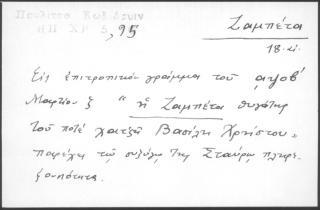 Πουλίτσα Κωδ Δτων
ΗΠ ΧΡ 5, 95
Ζαμπέτα
18. ιι.
Εἰς ἐπιτροπικὸν γράμμα τοῦ αψοβ´
Μαρτίου ξ " ἡ Ζαμπέτα θυγάτηρ
τοῦ ποτὲ χατζῆ Βασίλη Χρήστου "
παρέχει τῷ συζύγῳ της Σταύρῳ πληρε-
ξουσιότητα.